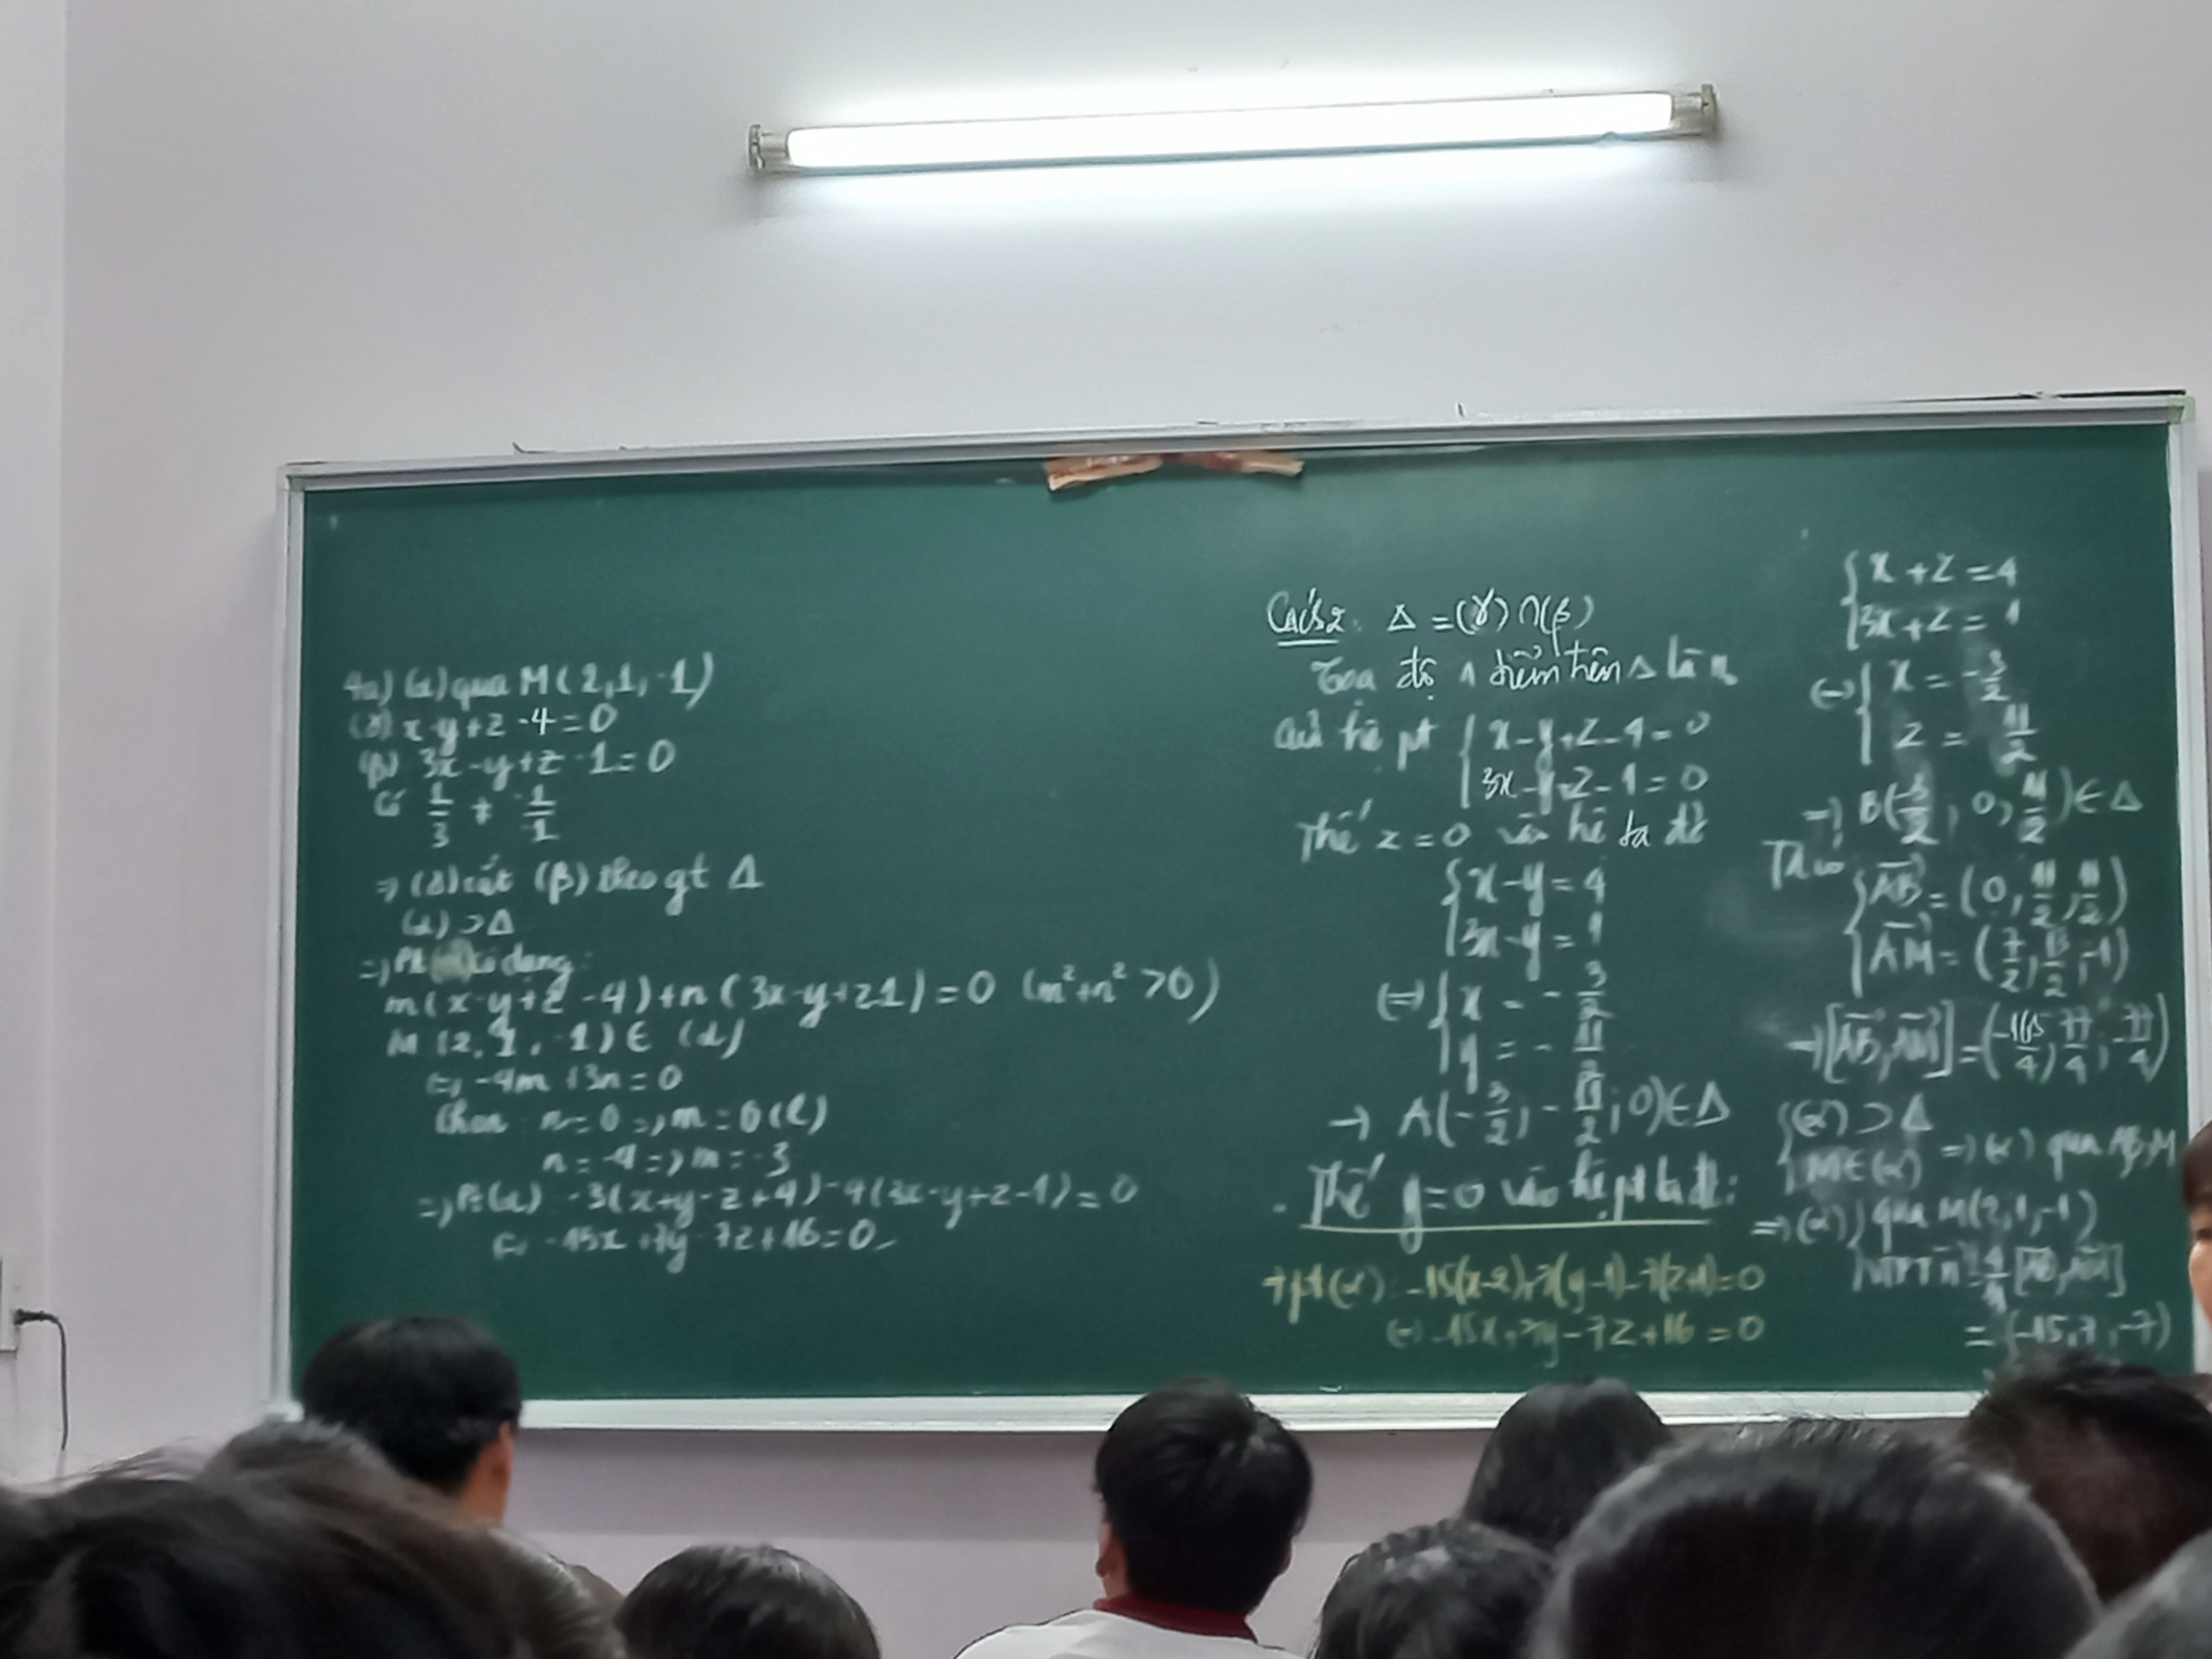 4a) (α) qua M(2,1,-1)
(γ) x-y+z-4=0
(β) 3x-y+z-1=0
Có 1/3 ≠ -1/-1
=> (γ) cắt (β) theo gt Δ
(α) ⊃ Δ
=> Pt (α) có dạng:
m(x-y+z-4)+n(3x-y+z-1)=0 (m²+n²>0)
M(2,1,-1) ∈ (α)
<=> -4m+3n=0
Chọn n=0 => m=0 (l)
n=-4 => m=-3
=> Pt(α) -3(x+y-z+4)-4(3x-y+z-1)=0
<=> -15x+7y-7z+16=0
Cách 2. Δ=(γ)∩(β)
Tọa độ 1 điểm trên Δ là n
của hệ pt { x-y+z-4=0
3x-y+z-1=0
Thế z=0 vào hệ ta đc
{ x-y=4
3x-y=1
<=> { x=-3/2
y=-11/2
→ A(-3/2; -11/2; 0) ∈ Δ
- Thế y=0 vào hệ pt ta đc:
{ x+z=4
3x+z=1
<=> { x=-3/2
z=11/2
=> B(-3/2; 0; 11/2) ∈ Δ
{ AB=(0, 11/2, 11/2)
AM=(7/2, 13/2, -1)
=> [AB, AM]=(-165/4, 77/4, -77/4)
{ (α) ⊃ Δ
M∈(α) => (α) qua A,B,M
=> (α) { qua M(2,1,-1)
VTPT n = [AB, AM]
=(-15,7,-7)
→ pt(α): -15(x-2)+7(y-1)-7(z+1)=0
<=> -15x+7y-7z+16=0